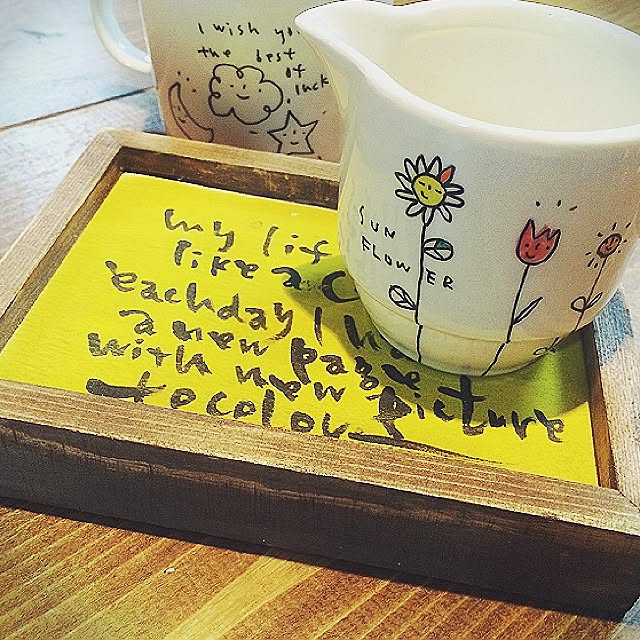 I wish yo
the best
of
luck
SUN
FLOWER
my lif
like a c
eachday I ha
a new page
with new picture
to color